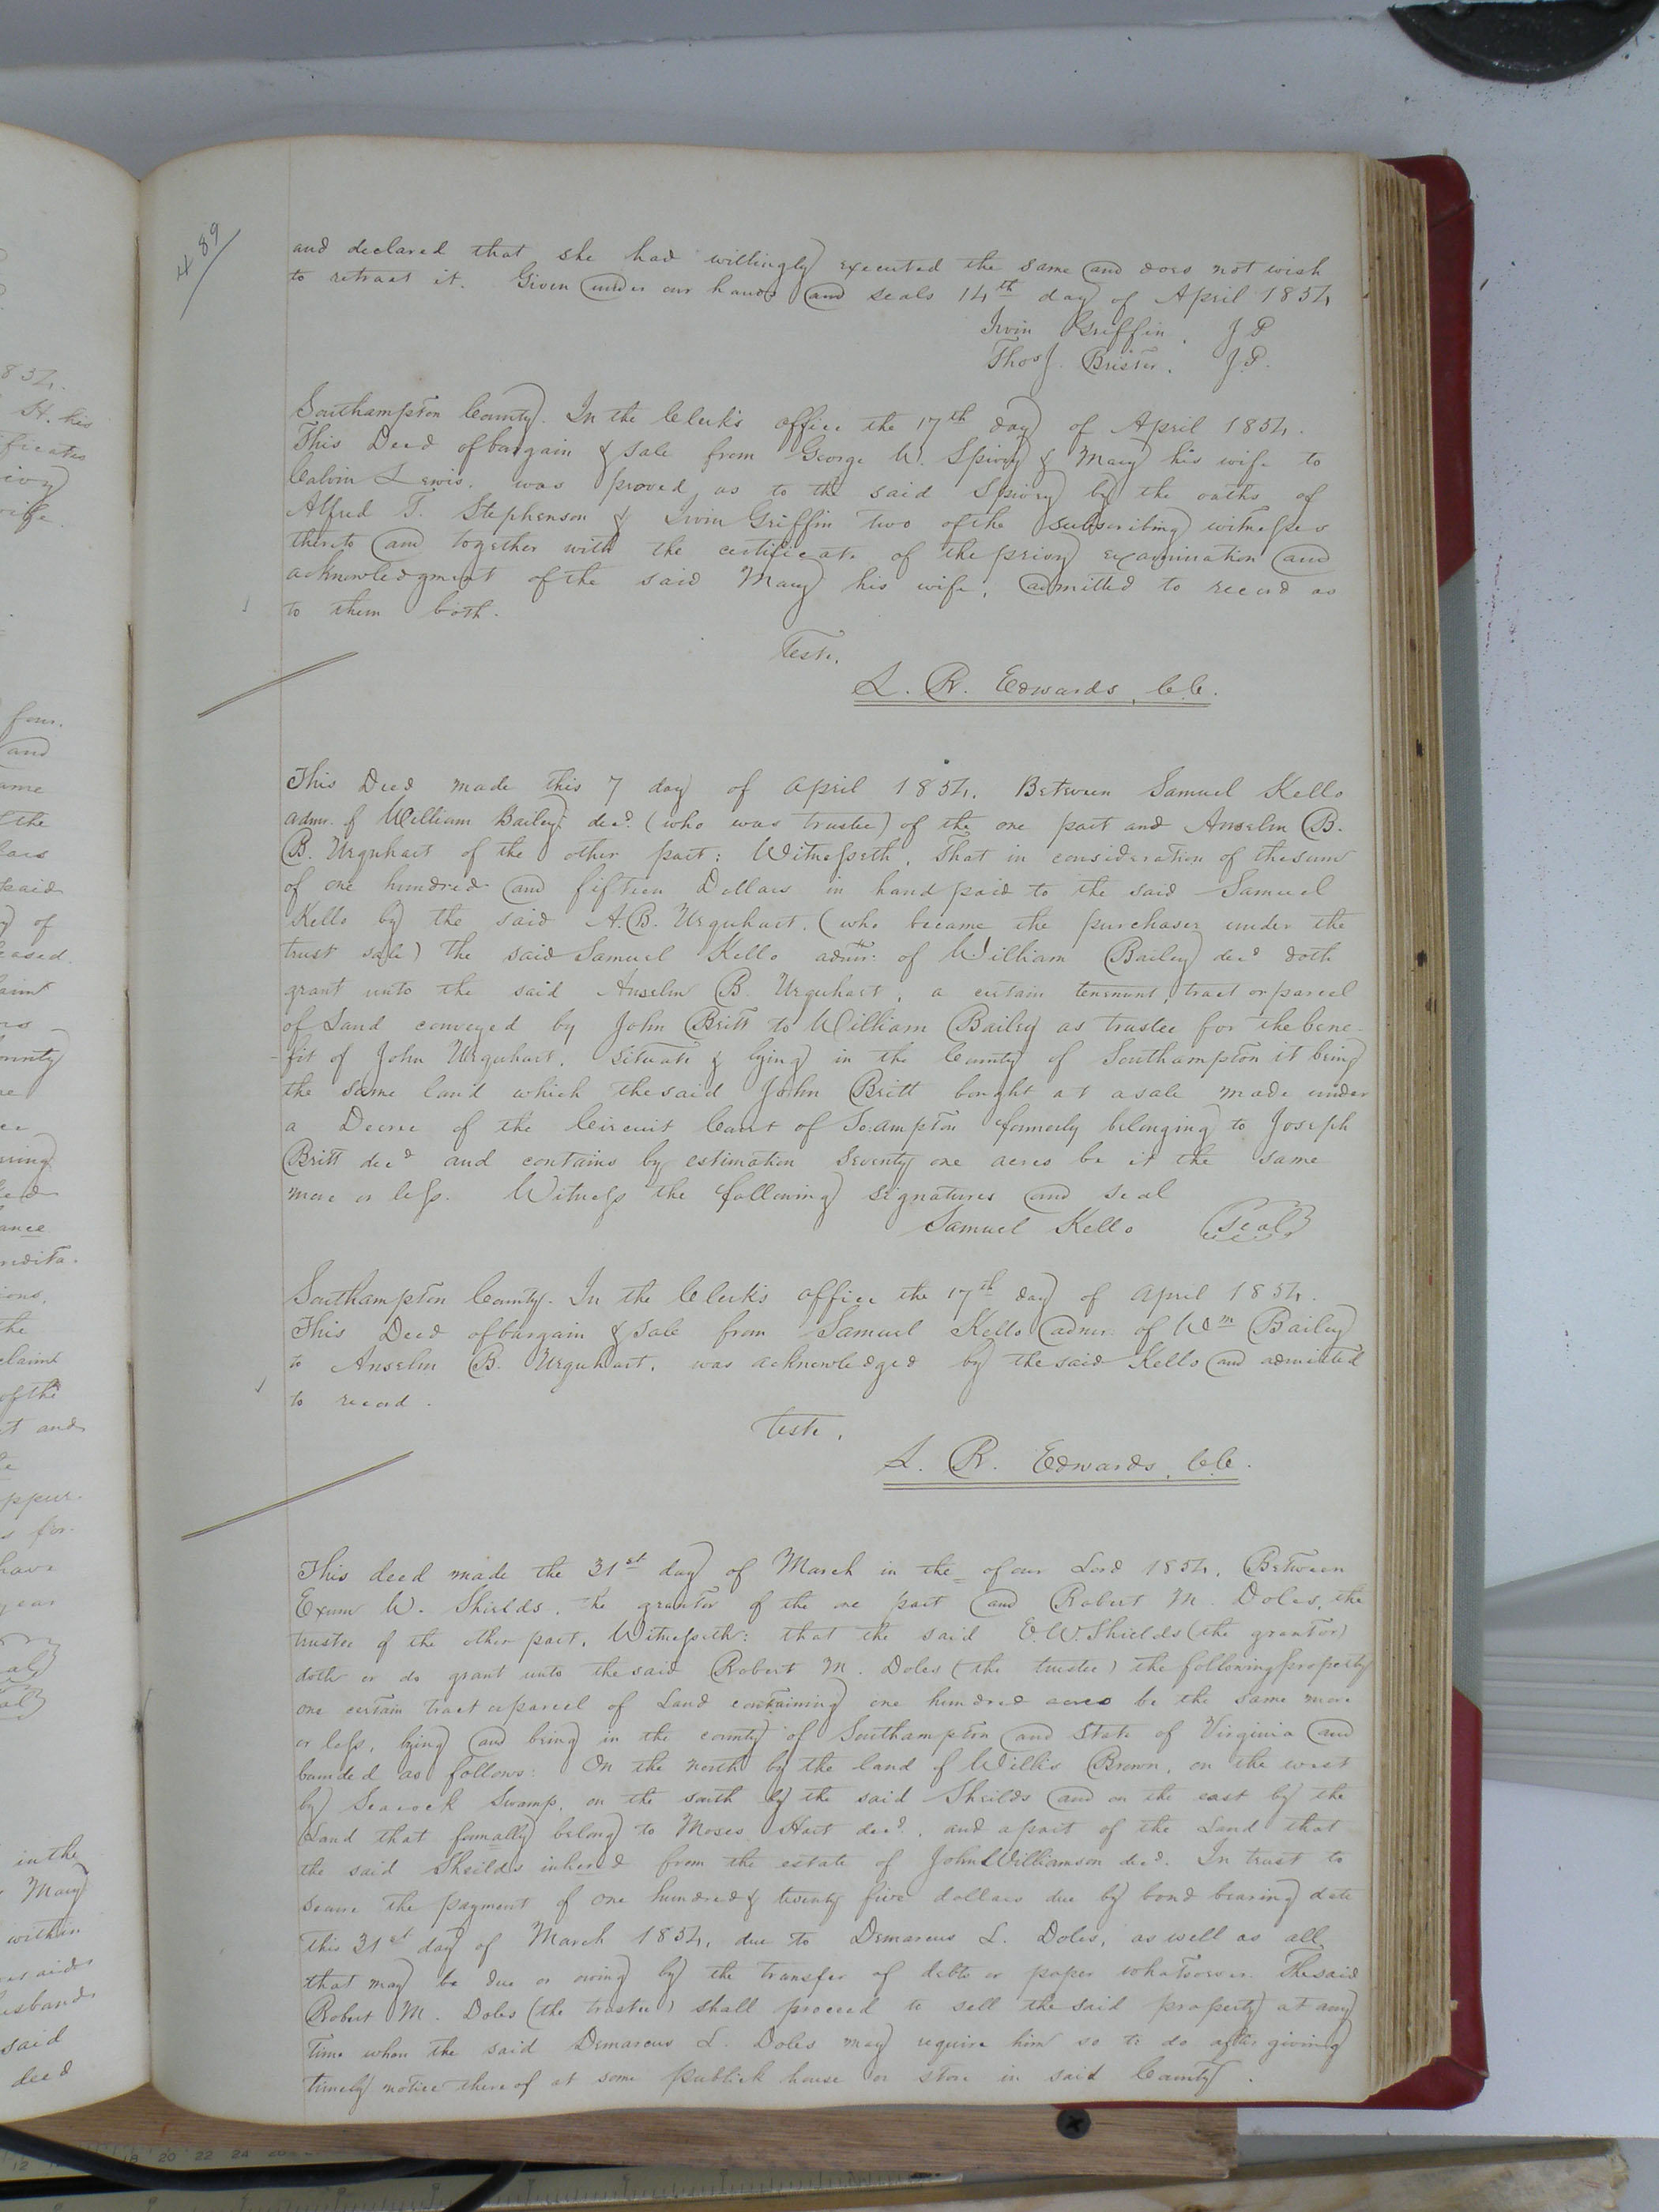 489
and declared that she had willingly executed the same and does not wish
to retract it. Given under our hands and seals 14th day of April 1854
Irvin Griffin. J P
Thos J. Brister. J.P.
Southampton County. In the Clerk's office the 17th day of April 1854.
This Deed of bargain & sale from George W. Spivey & Mary his wife to
Calvin Lewis. was proved as to the said Spivey by the oaths of
Alfred T. Stephenson & Irvin Griffin two of the subscribing witnesses
thereto and together with the certificate of the privy examination and
acknowledgment of the said Mary his wife, admitted to record as
to them both.
Teste,
L. R. Edwards, C.C.
This Deed made this 7 day of April 1854. Between Samuel Kello
admr. of William Bailey decd. (who was trustee) of the one part and Anselm B.
B. Urquhart of the other part: Witnesseth, That in consideration of the sum
of one hundred and fifteen Dollars in hand paid to the said Samuel
Kello by the said A. B. Urquhart. (who became the purchaser under the
trust sale) the said Samuel Kello admr: of William Bailey decd doth
grant unto the said Anselm B. Urquhart, a certain tenement, tract or parcel
of Land conveyed by John Britt to William Bailey as trustee for the bene-
-fit of John Urquhart. Situate & lying in the County of Southampton it being
the same land which the said John Britt bought at a sale made under
a Decree of the Circuit Court of So:ampton formerly belonging to Joseph
Britt decd and contains by estimation Seventy one acres be it the same
more or less. Witness the following signatures and seal
Samuel Kello Seal
Southampton County. In the Clerk's office the 17th day of April 1854.
This Deed of bargain & sale from Samuel Kello admr. of Wm Bailey
to Anselm B. Urquhart. was acknowledged by the said Kello and admitted
to record.
Teste,
L. R. Edwards, C.C.
This deed made the 31st day of March in the = of our Lord 1854, Between
Exum W. Shields, the grantor of the one part and Robert M. Doles, the
trustee of the other part, Witnesseth: that the said E. W. Shields (the grantor)
doth or do grant unto the said Robert M. Doles (the trustee) the following property
one certain tract or parcel of Land containing one hundred acres be the same more
or less, lying and being in the county of Southampton and State of Virginia and
bounded as follows: On the north by the land of Willis Brown, on the west
by Seacock Swamp, on the south by the said Sheilds and on the east by the
Land that formally belong to Moses Hart decd. and a part of the Land that
the said Sheilds inhered from the estate of John Williamson decd. In trust to
secure the payment of one hundred & twenty five dollars due by bond bearing date
this 31st day of March 1854, due to Demarcus L. Doles, as well as all
that may be due or owing by the transfer of debts or paper whatsoever. The said
Robert M. Doles (the trustee) shall proceed to sell the said property at any
time when the said Demarcus L. Doles may require him so to do after giving
timely notice thereof at some publick house or store in said County.